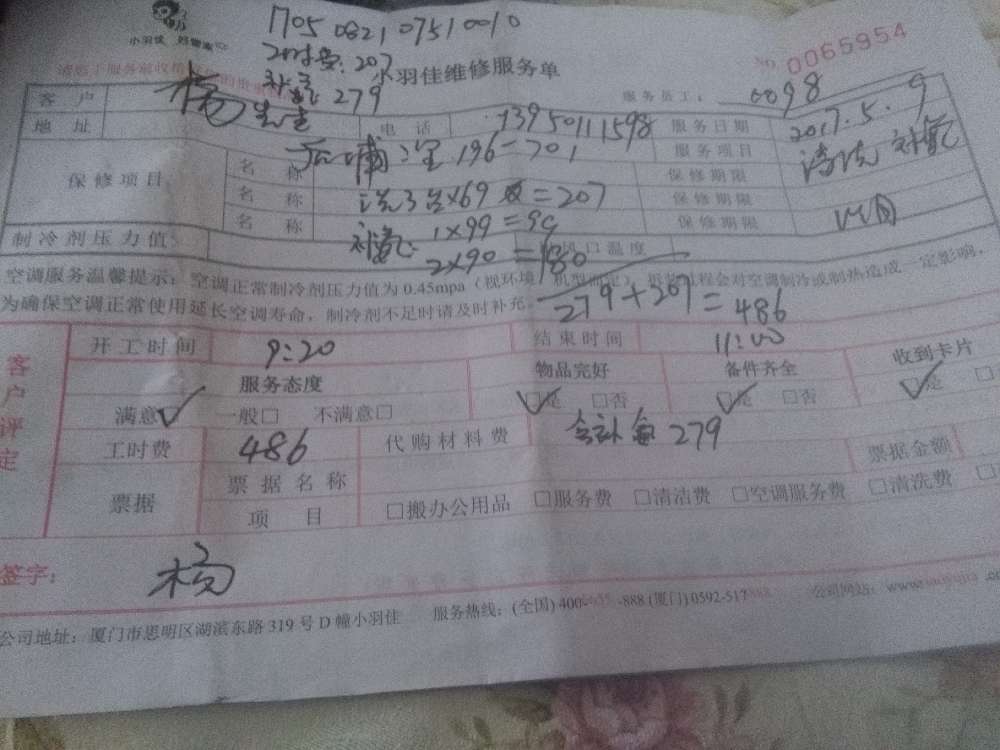 小羽佳 好管家
1705082107510010
工时费:207
补氟:279
小羽佳维修服务单
No 0065954
服务员工: 0098
客户 杨先生 电话 13950111598 服务日期 2017.5.9
地址 后埔 196-701 服务项目 清洗 补氟
保修项目 名称 保修期限
名称 洗3台×69 =207 保修期限
名称 补氟: 1×99=99 保修期限
制冷剂压力值 2×90=180 风口温度
279+207=486
空调服务温馨提示:空调正常制冷剂压力值为 0.45mpa(视环境、机型而定),拆装过程会对空调制冷或制热造成一定影响,
为确保空调正常使用延长空调寿命,制冷剂不足时请及时补充。
客户评定
开工时间 9:20 结束时间 11:00
服务态度 物品完好 备件齐全 收到卡片
满意✓ 一般□ 不满意□ ☑是 □否 ☑是 □否 ☑是 □
工时费 486 代购材料费 279
票据 票据名称 票据金额
项目 □搬办公用品 □服务费 □清洁费 □空调服务费 □清洗费 □
签字: 杨
公司地址:厦门市思明区湖滨东路 319 号 D 幢小羽佳 服务热线:(全国) 400- -888 (厦门) 0592-517 公司网站:www.